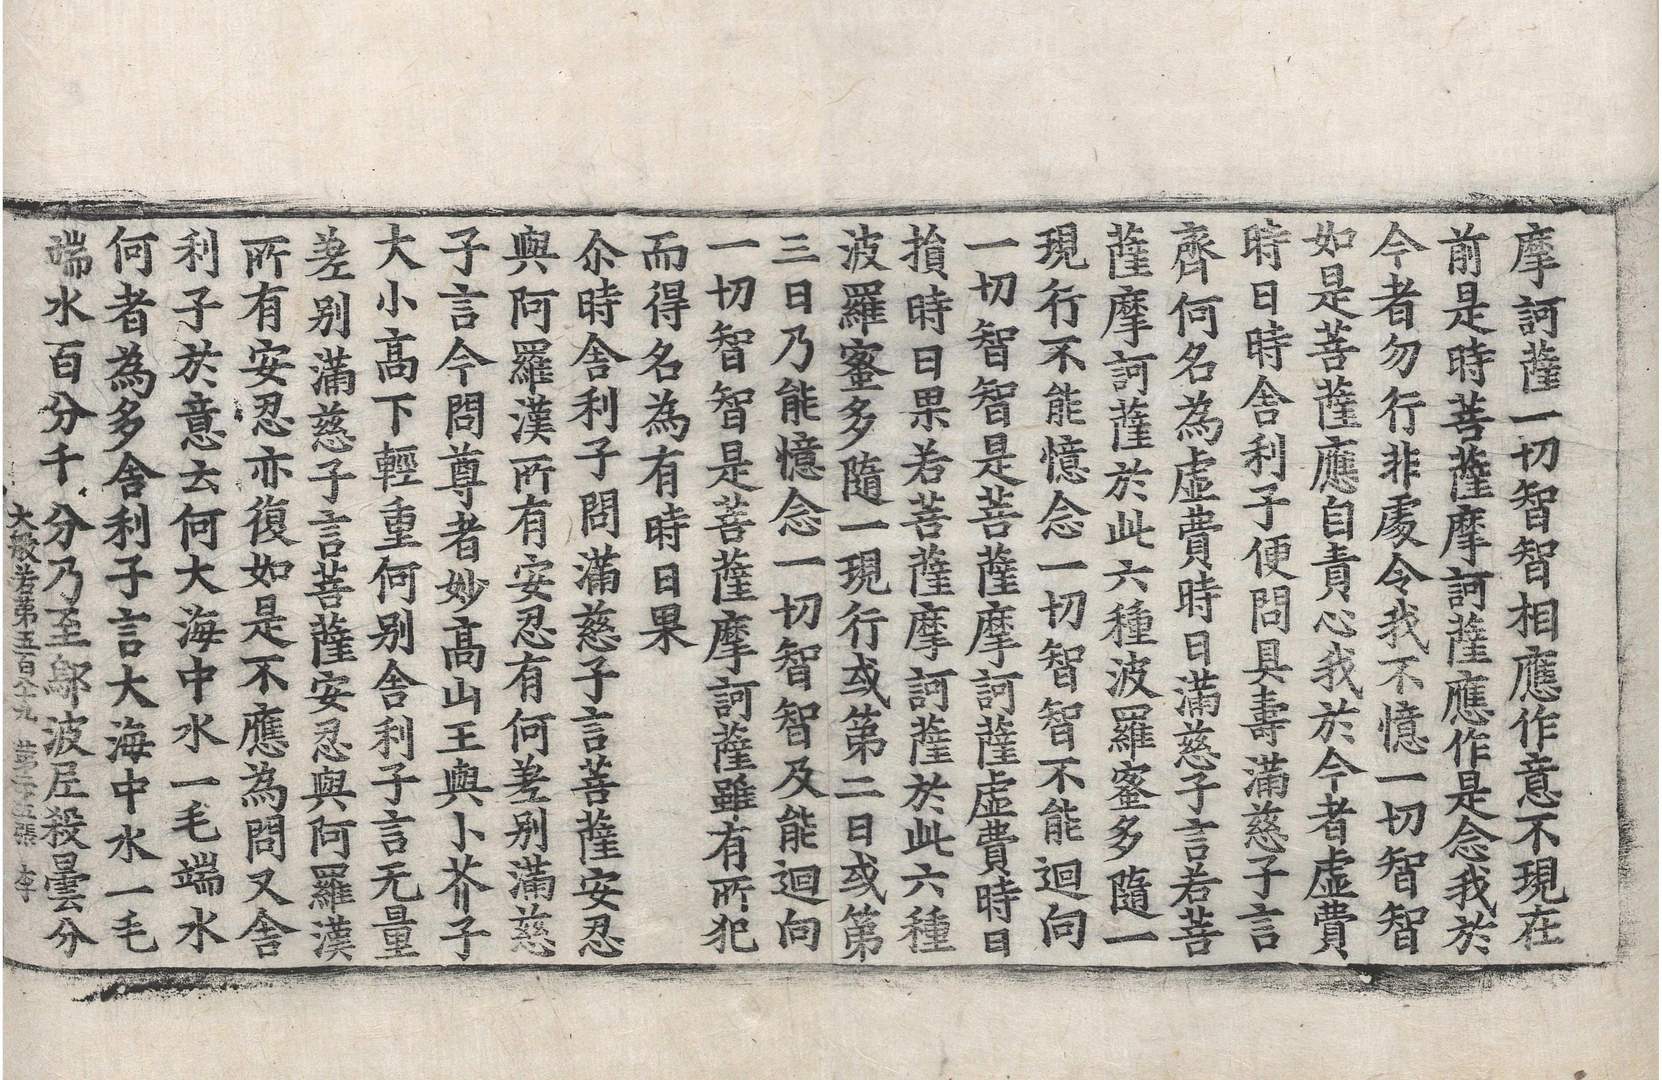 摩訶薩一切智智相應作意不現在
前是時菩薩摩訶薩應作是念我於
今者勿行非處令我不憶一切智智
如是菩薩應自責心我於今者虛費
時日時舍利子便問具壽滿慈子言
齊何名為虛費時日滿慈子言若菩
薩摩訶薩於此六種波羅蜜多隨一
現行不能憶念一切智智不能迴向
一切智智是菩薩摩訶薩虛費時日
損時日果若菩薩摩訶薩於此六種
波羅蜜多隨一現行或第二日或第
三日乃能憶念一切智智及能迴向
一切智智是菩薩摩訶薩雖有所犯
而得名為有時日果
尒時舍利子問滿慈子言菩薩安忍
與阿羅漢所有安忍有何差別滿慈
子言今問尊者妙高山王與小芥子
大小高下輕重何別舍利子言无量
差別滿慈子言菩薩安忍與阿羅漢
所有安忍亦復如是不應為問又舍
利子於意云何大海中水一毛端水
何者為多舍利子言大海中水一毛
端水百分千分乃至鄔波尼殺曇分
大般若第五百八十九 第二五張 李